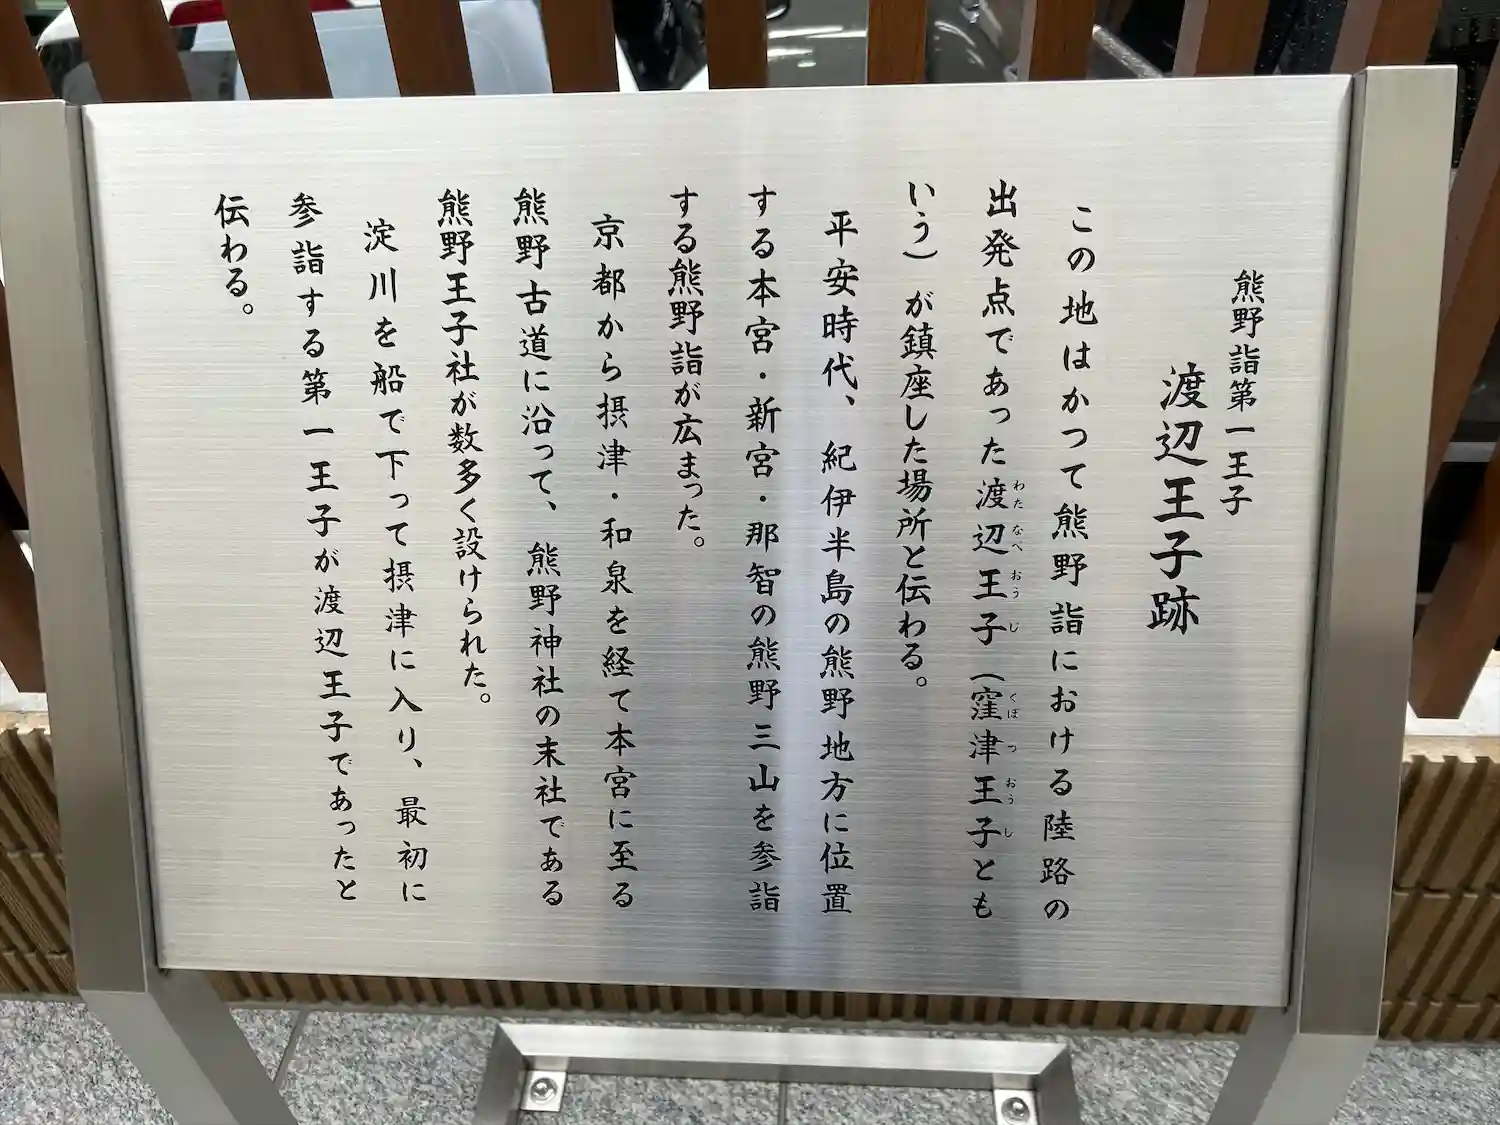 熊野詣第一王子
渡辺王子跡
この地はかつて熊野詣における陸路の
出発点であった渡辺王子（窪津王子とも
わたなべおうじ
くぼつおうし
いう）が鎮座した場所と伝わる。
平安時代、紀伊半島の熊野地方に位置
する本宮・新宮・那智の熊野三山を参詣
する熊野詣が広まった。
京都から摂津・和泉を経て本宮に至る
熊野古道に沿って、熊野神社の末社である
熊野王子社が数多く設けられた。
淀川を船で下って摂津に入り、最初に
参詣する第一王子が渡辺王子であったと
伝わる。